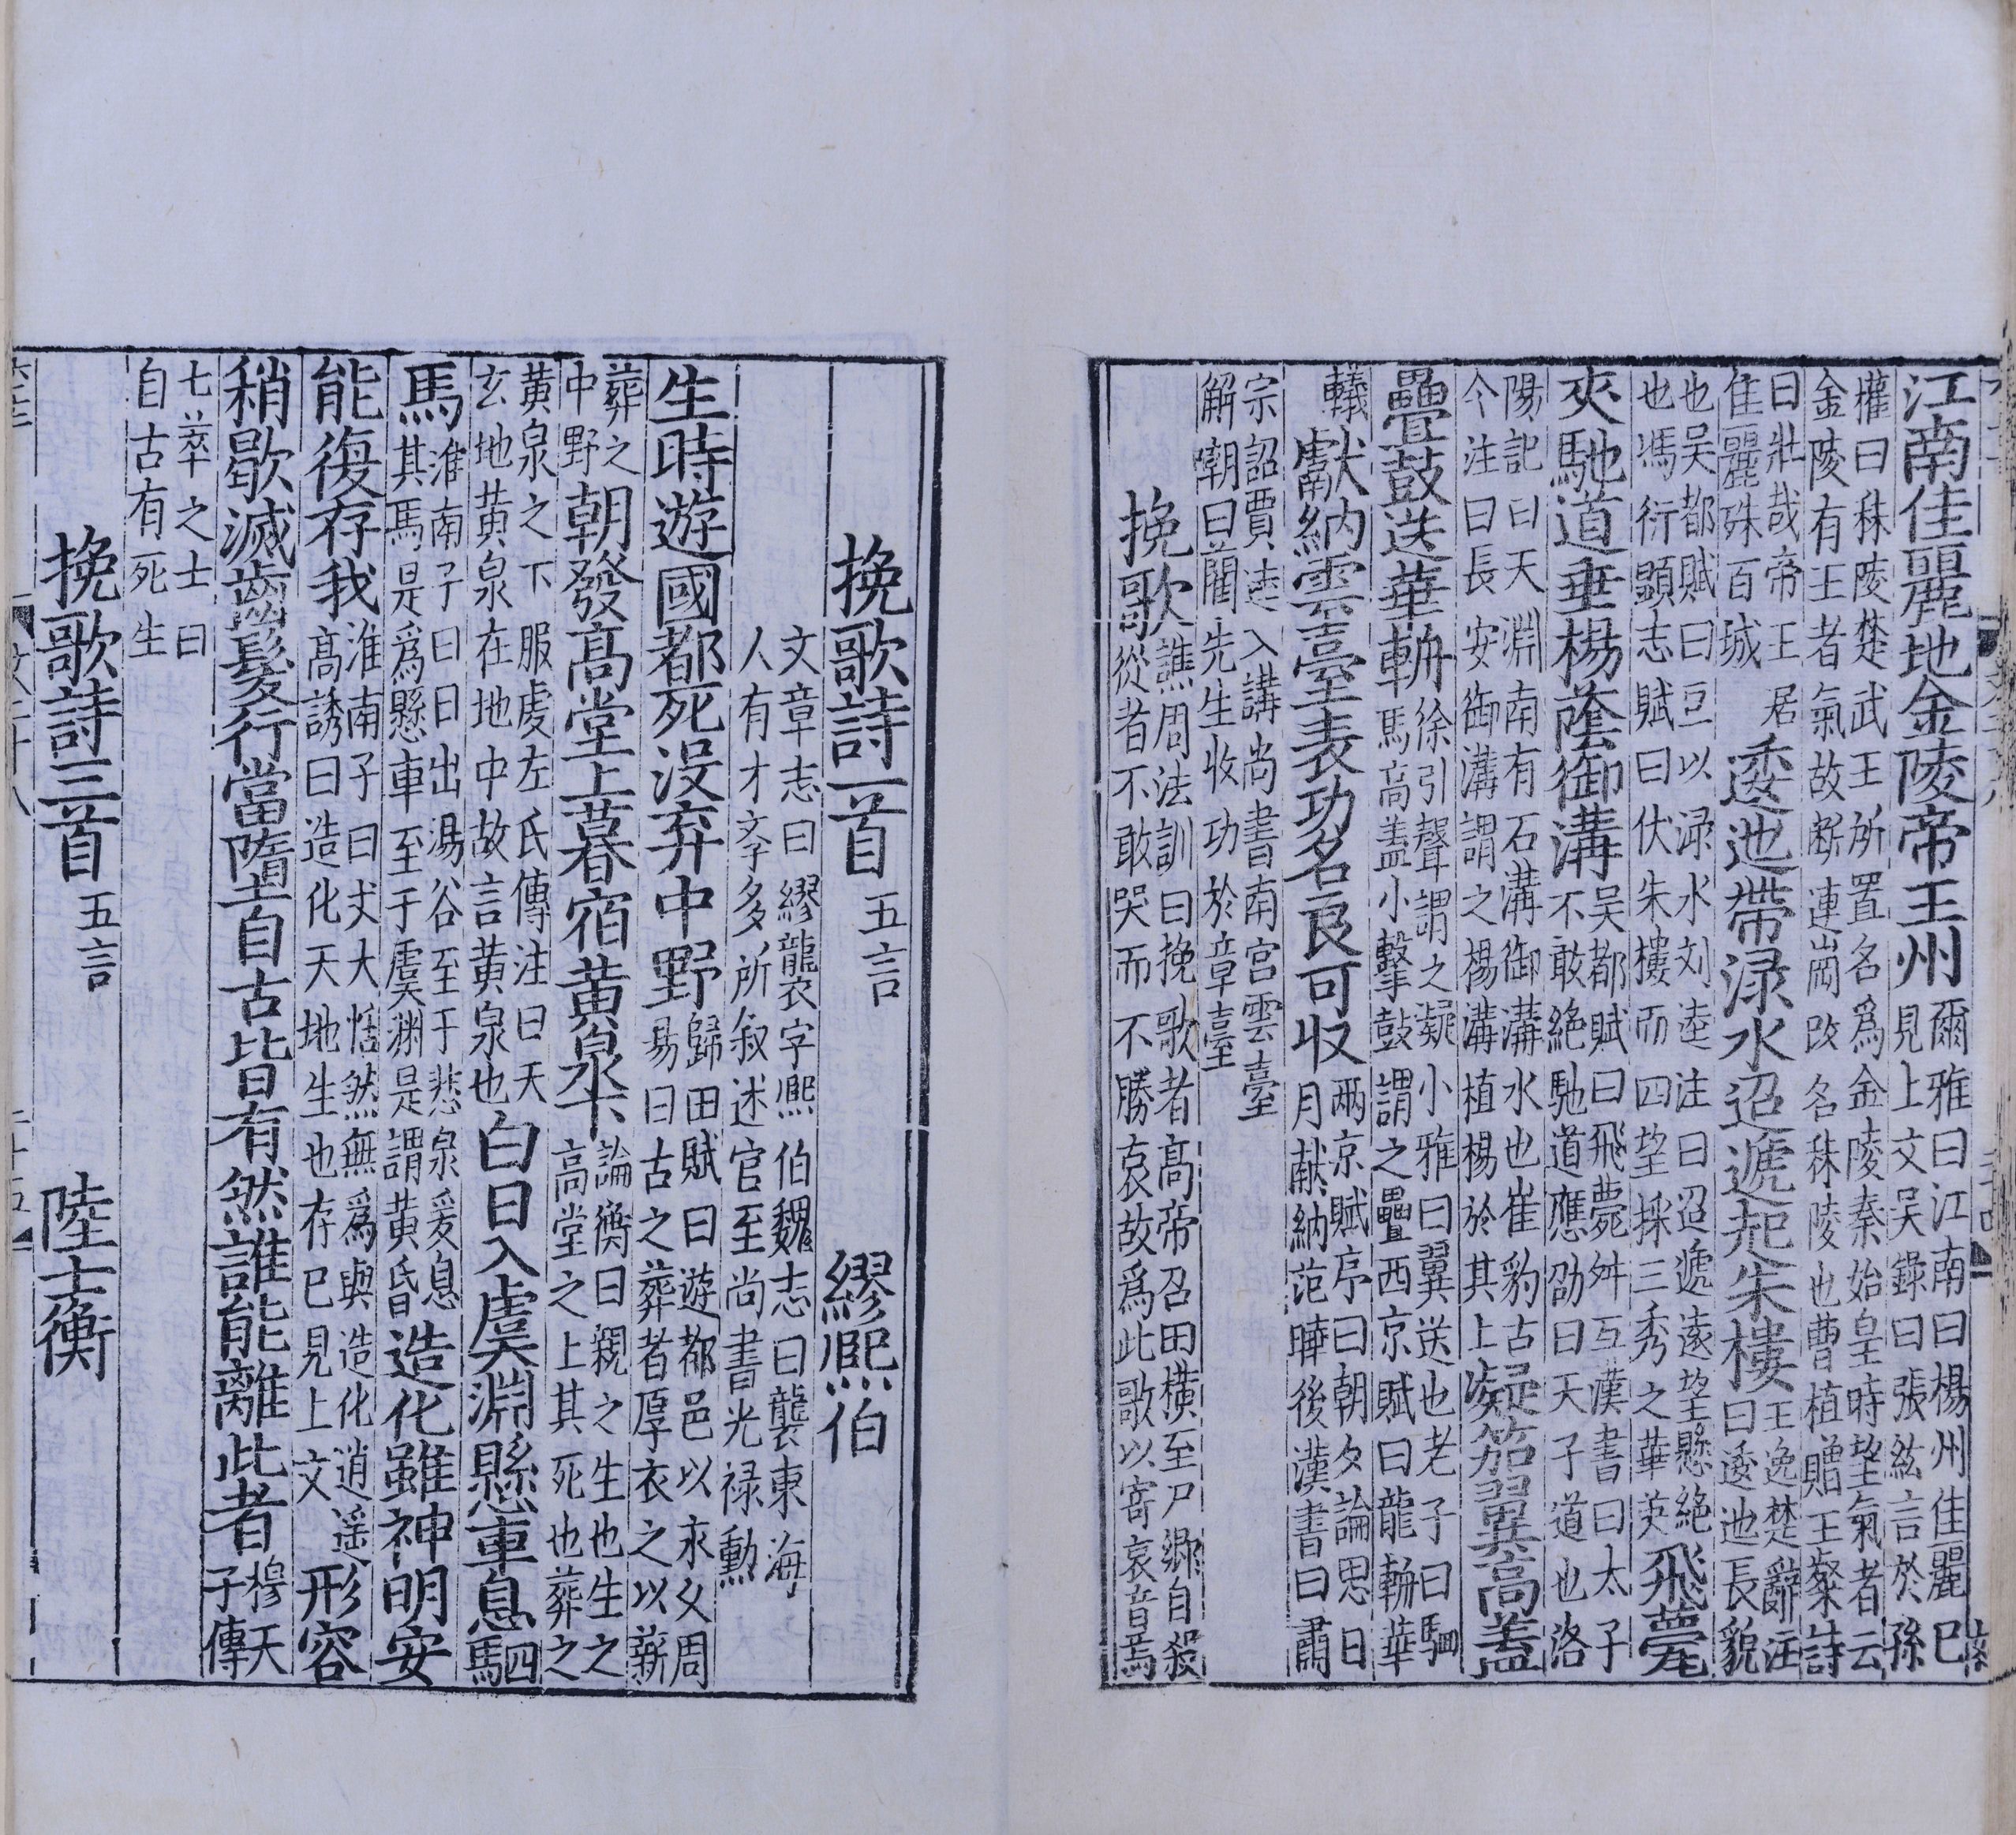 江南佳麗地金陵帝王州爾雅曰江南曰楊州佳麗巳見上文吳錄曰張紘言於孫
權曰秣陵楚武王所置名爲金陵秦始皇時望氣者云金陵有王者氣故斷連崗改名秣陵也曹植贈王粲詩
曰壯哉帝王居佳麗殊百城逶迤帶淥水迢遞起朱樓王逸楚辭注曰逶迤長貌
也吳都賦曰亘以淥水刘逵注曰迢遞遠望懸絕也馮衍顯志賦曰伏朱樓而四望採三秀之華英飛甍
夾馳道垂楊蔭御溝吳都賦曰飛甍舛互漢書曰太子不敢絕馳道應劭曰天子道也洛
陽記曰天淵南有石溝御溝水也崔豹古今注曰長安御溝謂之楊溝植楊於其上凝笳翼高蓋
疊鼓送華輈徐引聲謂之凝小雅曰翼送也老子曰駟馬高盖小擊鼓謂之疊西京賦曰龍輈華
轙獻納雲臺表功名良可收兩京賦序曰朝夕論思日月献納范曄後漢書曰肅
宗詔賈逵入講尚書南宮雲臺解嘲曰藺先生收功於章臺
挽歌譙周法訓曰挽歌者高帝召田橫至尸鄉自殺從者不敢哭而不勝哀故爲此歌以寄哀音焉
挽歌詩一首五言 繆熙伯
文章志曰繆襲字熙伯魏志曰襲東海人有才學多所叙述官至尚書光祿勳
生時遊國都死沒弃中野歸田賦曰遊都邑以永久周易曰古之葬者厚衣之以薪
葬之中野朝發高堂上暮宿黃泉下論衡曰親之生也生之高堂之上其死也葬之
黃泉之下服虔左氏傳注曰天玄地黃泉在地中故言黃泉也白日入虞淵懸車息駟
馬淮南子曰日出湯谷至于悲泉爰息其馬是爲懸車至于虞淵是謂黃昏造化雖神明安
能復存我淮南子曰大丈夫恬然無爲與造化逍遙高誘曰造化天地生也存巳見上文形容
稍歇滅齒髮行當墮自古皆有然誰能離此者穆天子傳
七萃之士曰自古有死生
挽歌詩三首五言 陸士衡